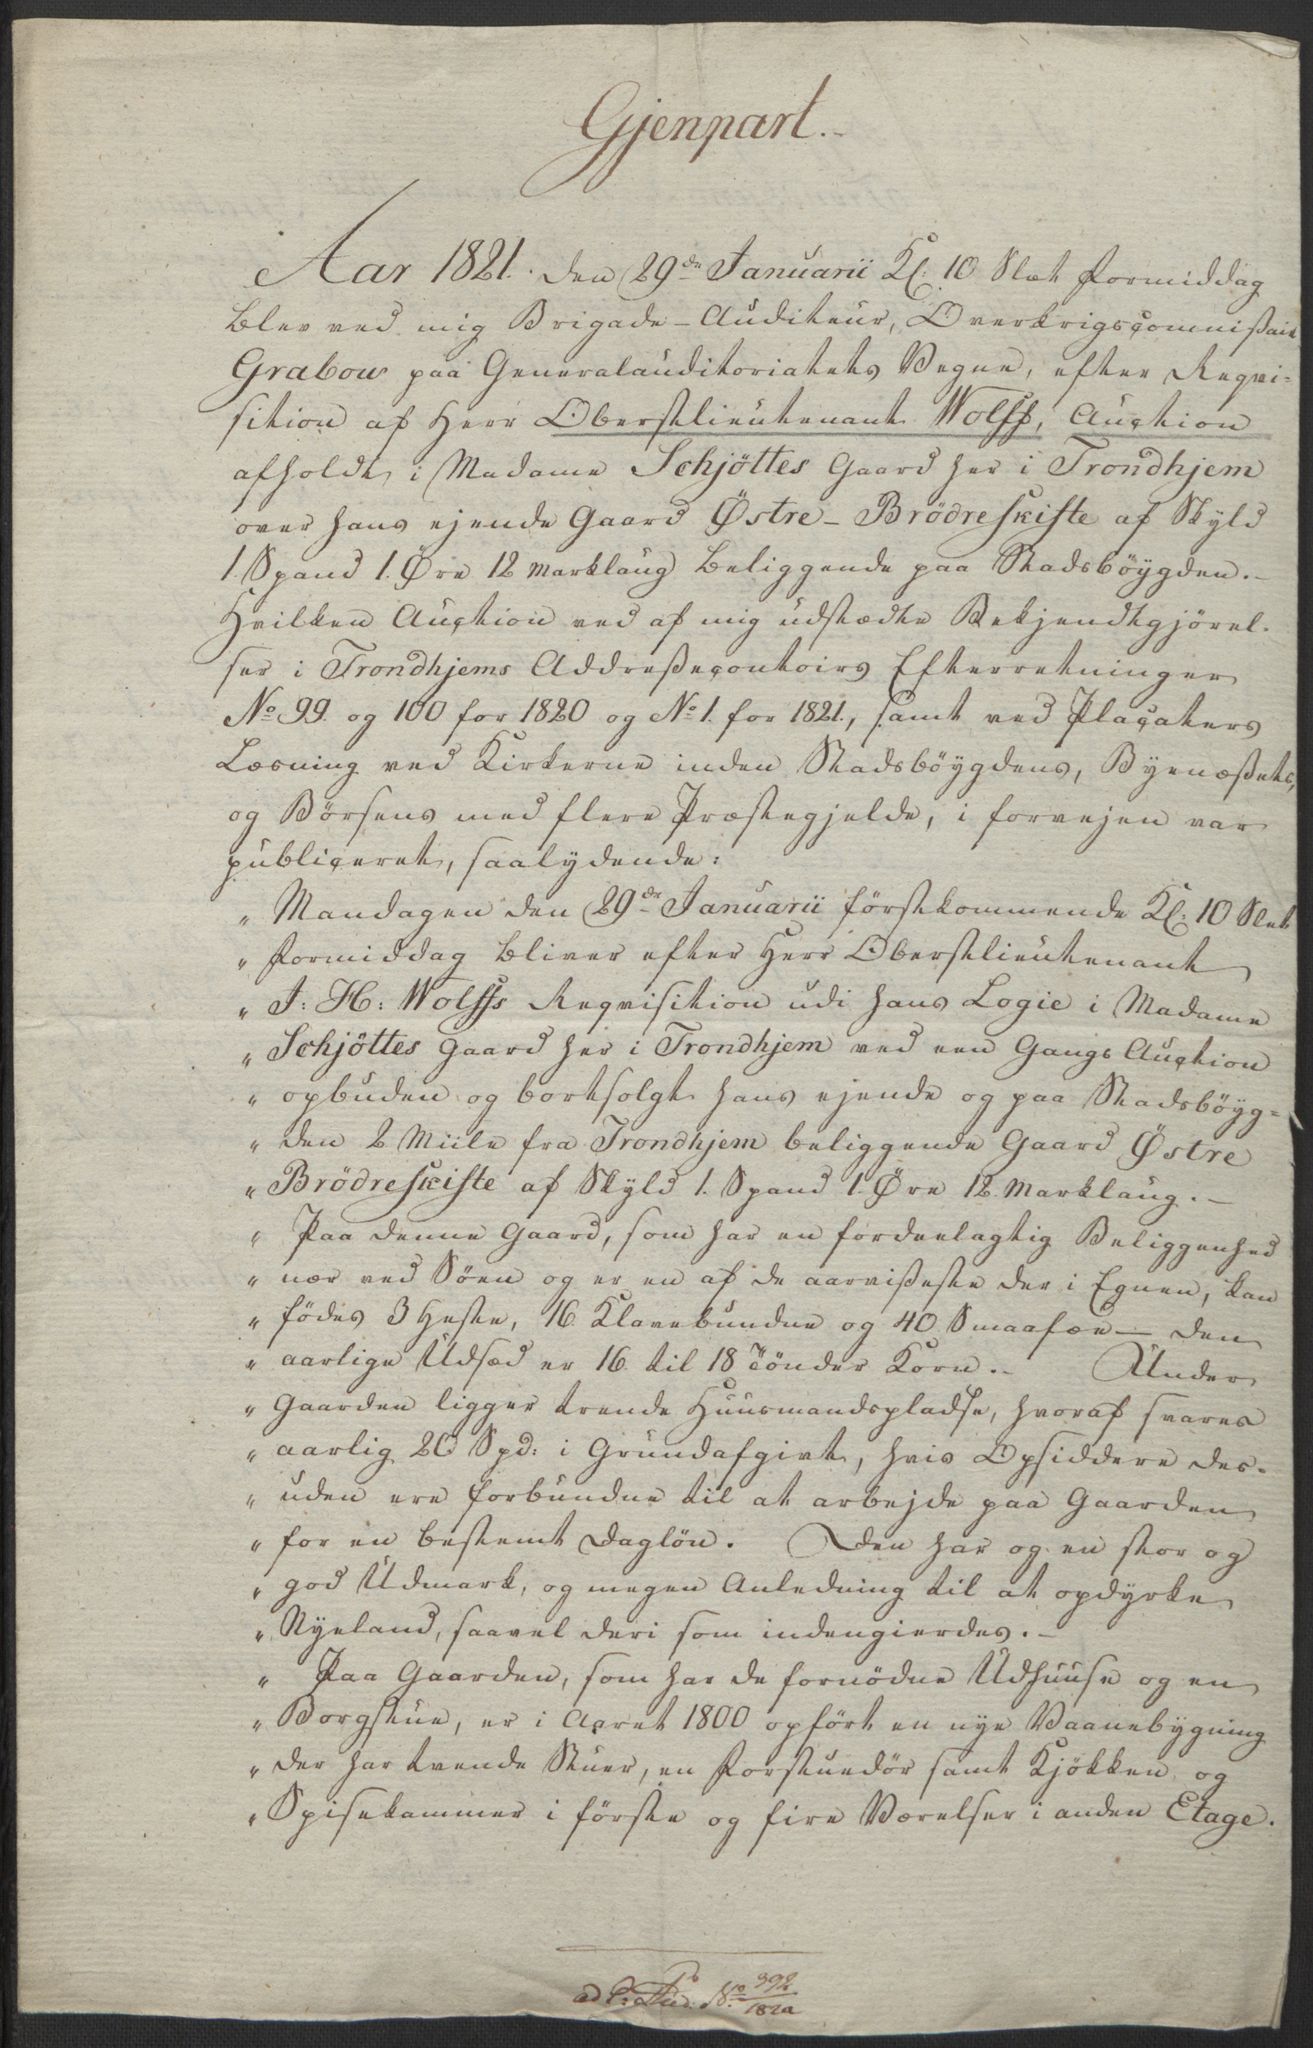 Gjenpart.
Aar 1821. den 29de Januarii Kl: 10 Slet Formiddag
blev ved mig Brigade-Auditeur, Overkrigscommißair
Grabow paa Generalauditoriatets Vegne, efter Reqvi-
sition af Herr Oberstlieutenant Wolff, Auction
afholdt i Madame Schjöttes Gaard her i Trondhjem
over hans ejende Gaard Østre-Brödreskiste af Skyld
1. Spand 1. Øre 12 Marklaug beliggende paa Stadsböygden.-
Hvilken Auction ved af mig udstædte Bekjendtgjörel-
ser i Trondhjems Addreßecontoirs Efterretninger
No 99. og 100 for 1820 og No 1. for 1821., samt ved Placaters
Læsning ved Kirkerne inden Stadsböygdens, Byenæßets,
og Börsens med flere Præstegjelde, i forvejen var
publiceret, saalydende:
" Mandagen den 29de Januarii förstkommende Kl: 10 Slet
" Formiddag bliver efter Herr Oberstlieutenant
" J: H: Wolffs Reqvisition udi hans Logie i Madame
" Schjöttes Gaard her i Trondhjem ved een Gangs Auction
" opbuden og bortsolgt hans ejende og paa Stadsböyg-
" den 2 Miile fra Trondhjem beliggende Gaard Østre
" Brödreskiste af Skyld 1. Spand 1. Øre 12. Marklaug.-
" Paa denne Gaard, som har en fordeelagtig Beliggenhed
" nær ved Söen og er en af de aarvißeste der i Egnen, kan
" födes 3 Heste, 16 Klavebundne og 40 Smaafæe - den
" aarlige Udsæd er 16 til 18 Tönder Korn.- Under
" Gaarden ligger trende Huusmandspladse, hvoraf svares
" aarlig 20 Spd: i Grundafgivt, hvis Opsiddere des-
" uden ere forbundne til at arbejde paa Gaarden
" for en bestemt Daglön. Den har og en stor og
" god Udmark, og megen Anledning til at opdyrke
" Nyeland, saavel deri som indengierdes.-
" Paa Gaarden, som har de fornödne Udhuuse og en
" Borgstue, er i Aaret 1800 opfört en nye Vaanebygning
" der har tvende Stuer, en Forstuedör samt Kjökken og
" Spisekammer i förste og fire Værelser i anden Etage.
No 392